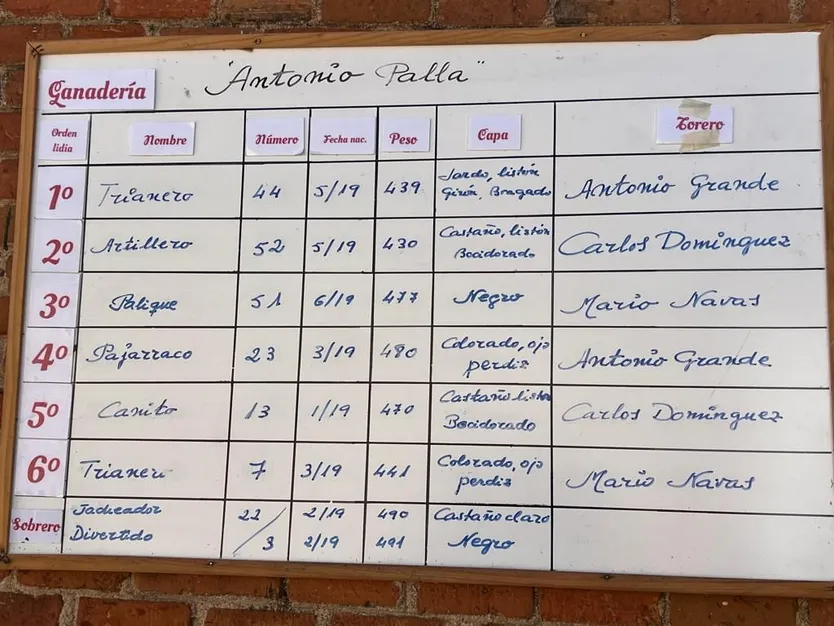 Ganadería "Antonio Palla"
Orden lidia Nombre Número Fecha nac. Peso Capa Torero
1º Trianero 44 5/19 439 Jardo, listón Girón, Bragado Antonio Grande
2º Artillero 52 5/19 430 Castaño, listón Bocidorado Carlos Domínguez
3º Palique 51 6/19 477 Negro Mario Navas
4º Pajarraco 23 3/19 480 Colorado, ojo perdiz Antonio Grande
5º Canito 13 1/19 470 Castaño listón Bocidorado Carlos Domínguez
6º Trianero 7 3/19 441 Colorado, ojo perdiz Mario Navas
Sobrero Tacheador 22 2/19 490 Castaño claro
Divertido 3 2/19 491 Negro